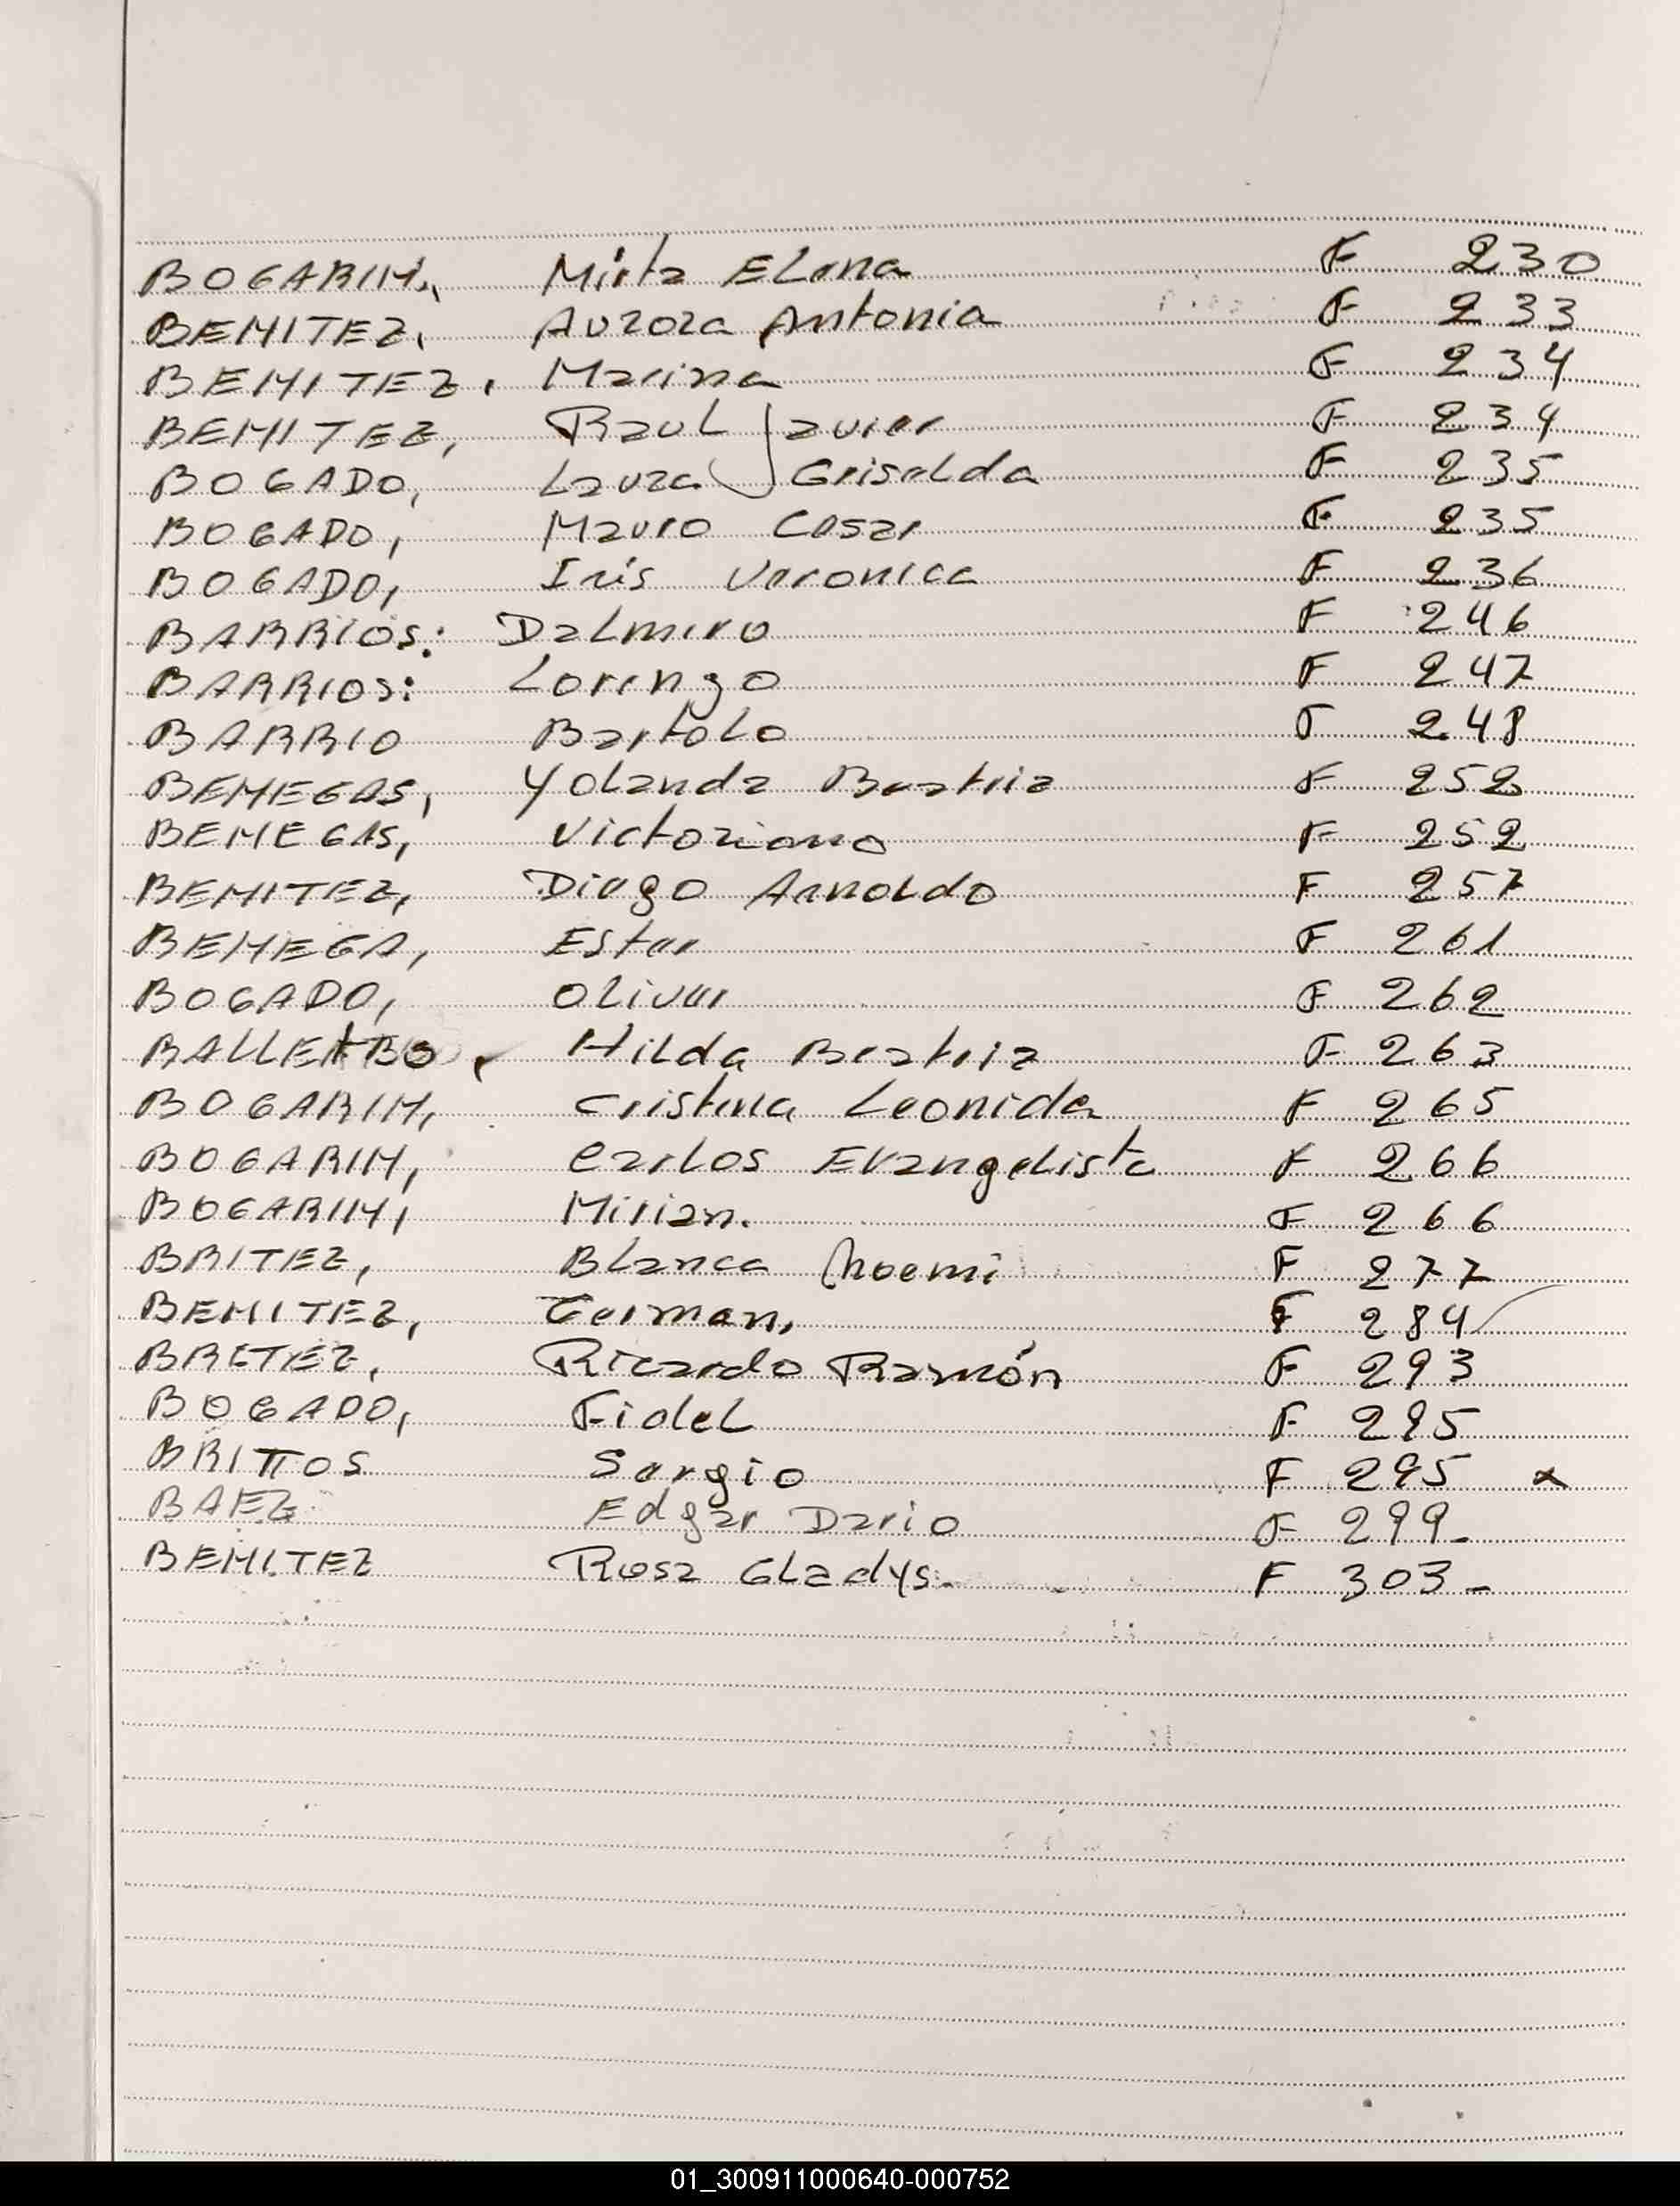 BOGARIN, Mirta Elena F 230
BENITEZ, Aurora Antonia F 233
BENITEZ, Marina F 234
BENITEZ, Raul Javier F 234
BOGADO, Laura Griselda F 235
BOGADO, Mauro Cesar F 235
BOGADO, Iris Veronica F 236
BARRIOS: Dalmiro F 246
BARRIOS: Lorenzo F 247
BARRIO Bartolo F 248
BENEGAS, Yolanda Beatriz F 252
BENEGAS, Victoriano F 252
BENITEZ, Diego Arnoldo F 257
BENEGA, Ester F 261
BOGADO, Oliver F 262
Hilda Beatriz F 263
BOGARIN, Cristina Leonida F 265
BOGARIN, Carlos Evangelista F 266
BOGARIN, Mirian. F 266
BRITEZ, Blanca Noemi F 277
BENITEZ, German, F 284
BRITEZ, Ricardo Ramón F 293
BOGADO, Fidel F 295
BRITTOS Sergio F 295 x
BAEZ Edgar Dario F 299-
BENITEZ Rosa Gladys. F 303-
01_300911000640-000752